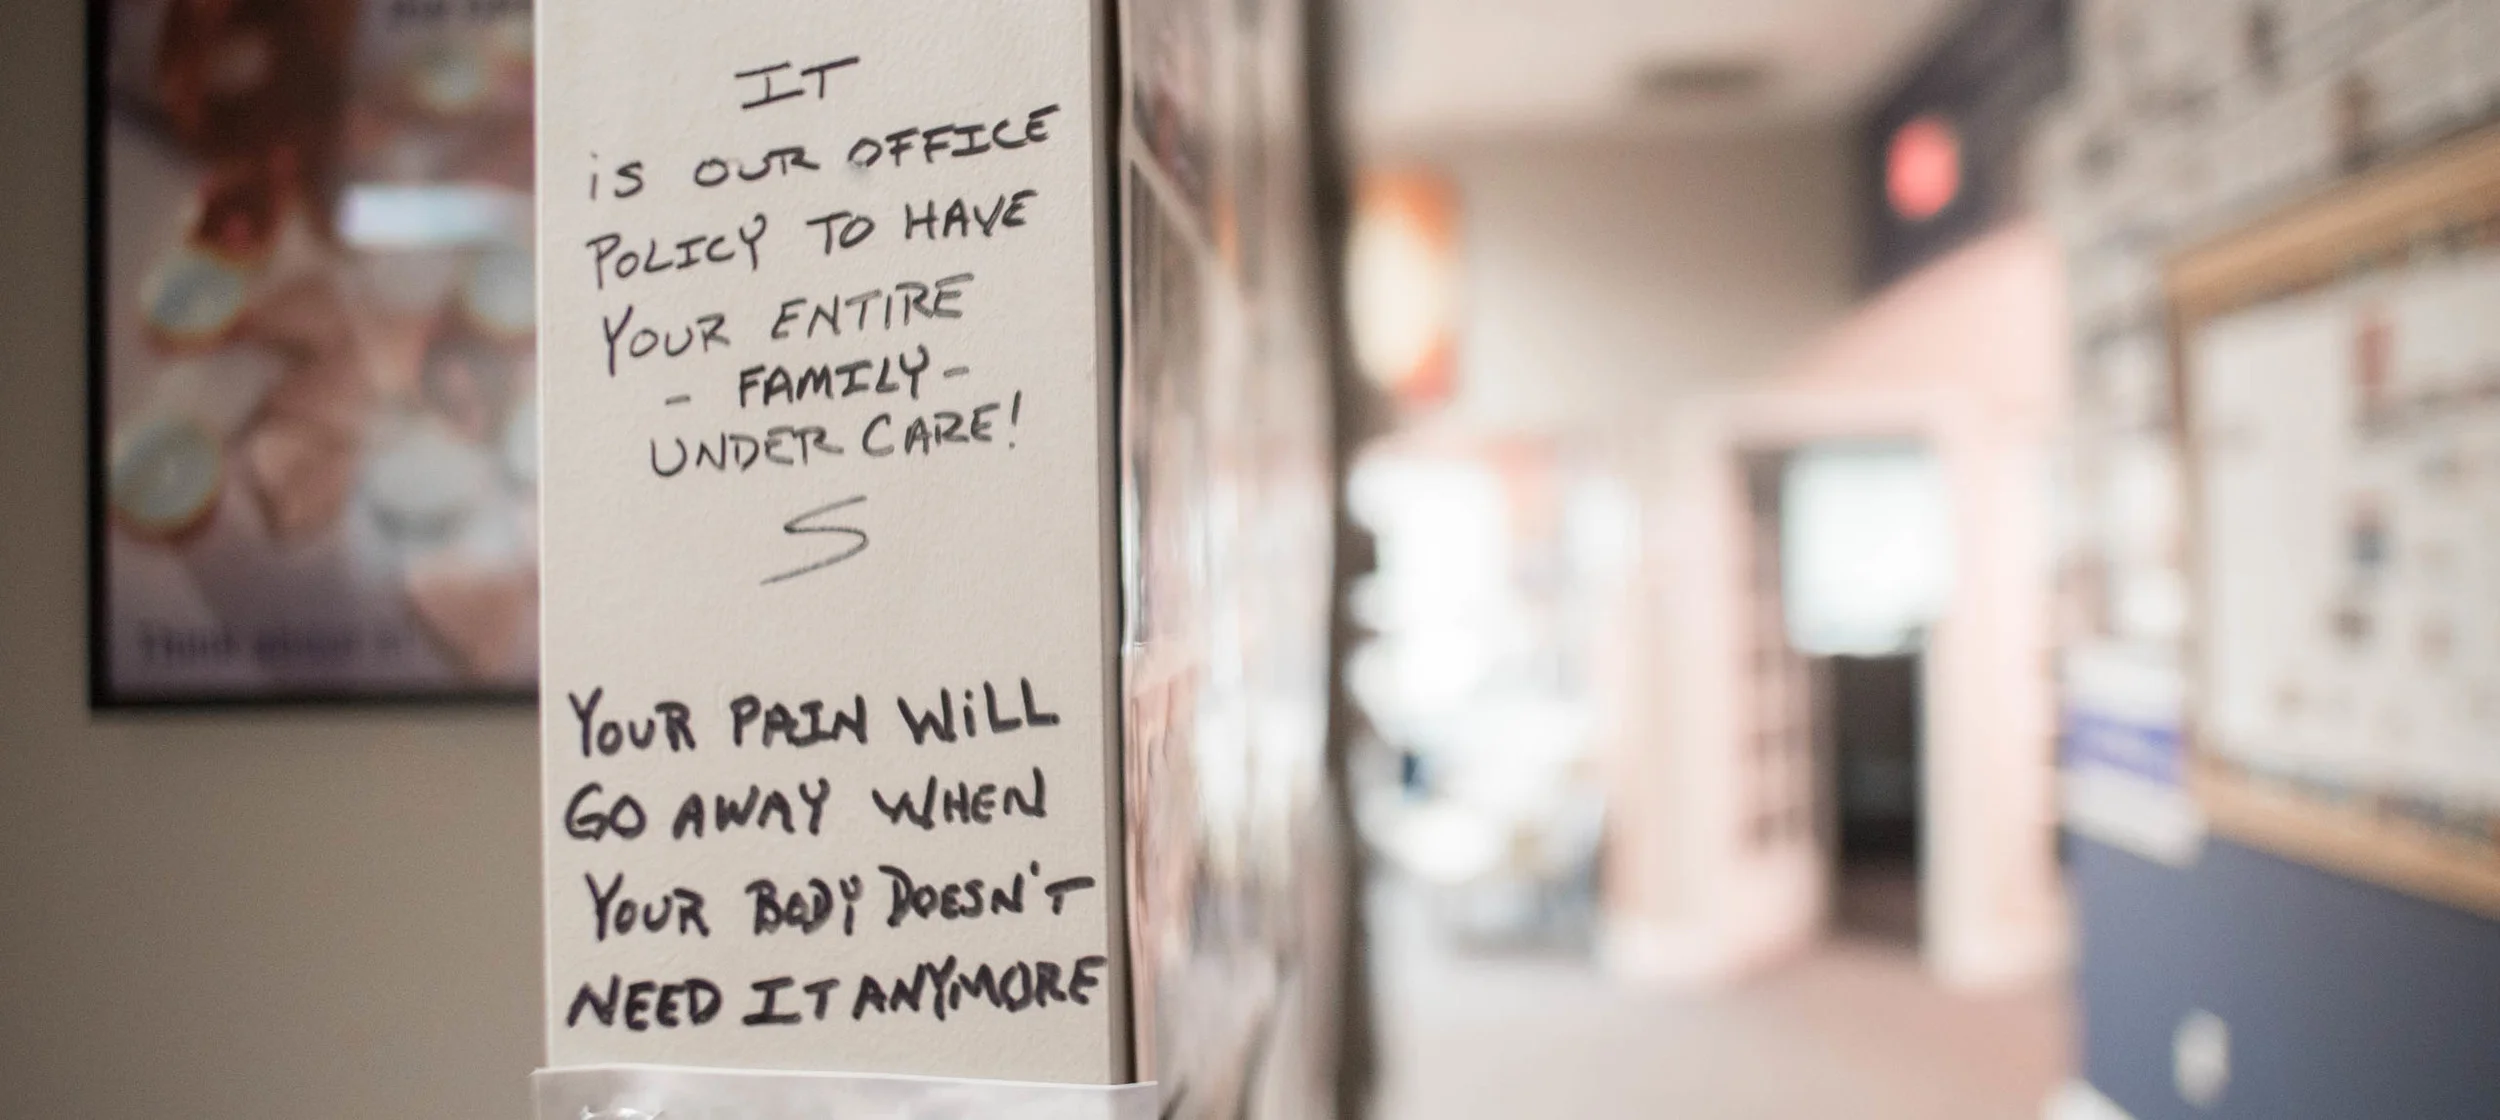 IT
is OUR OFFICE
POLICY TO HAVE
YOUR ENTIRE
- FAMILY -
UNDER CARE!
S
YOUR PAIN WiLL
GO AWAY WHEN
YOUR BODY DOESN'T
NEED IT ANYMORE